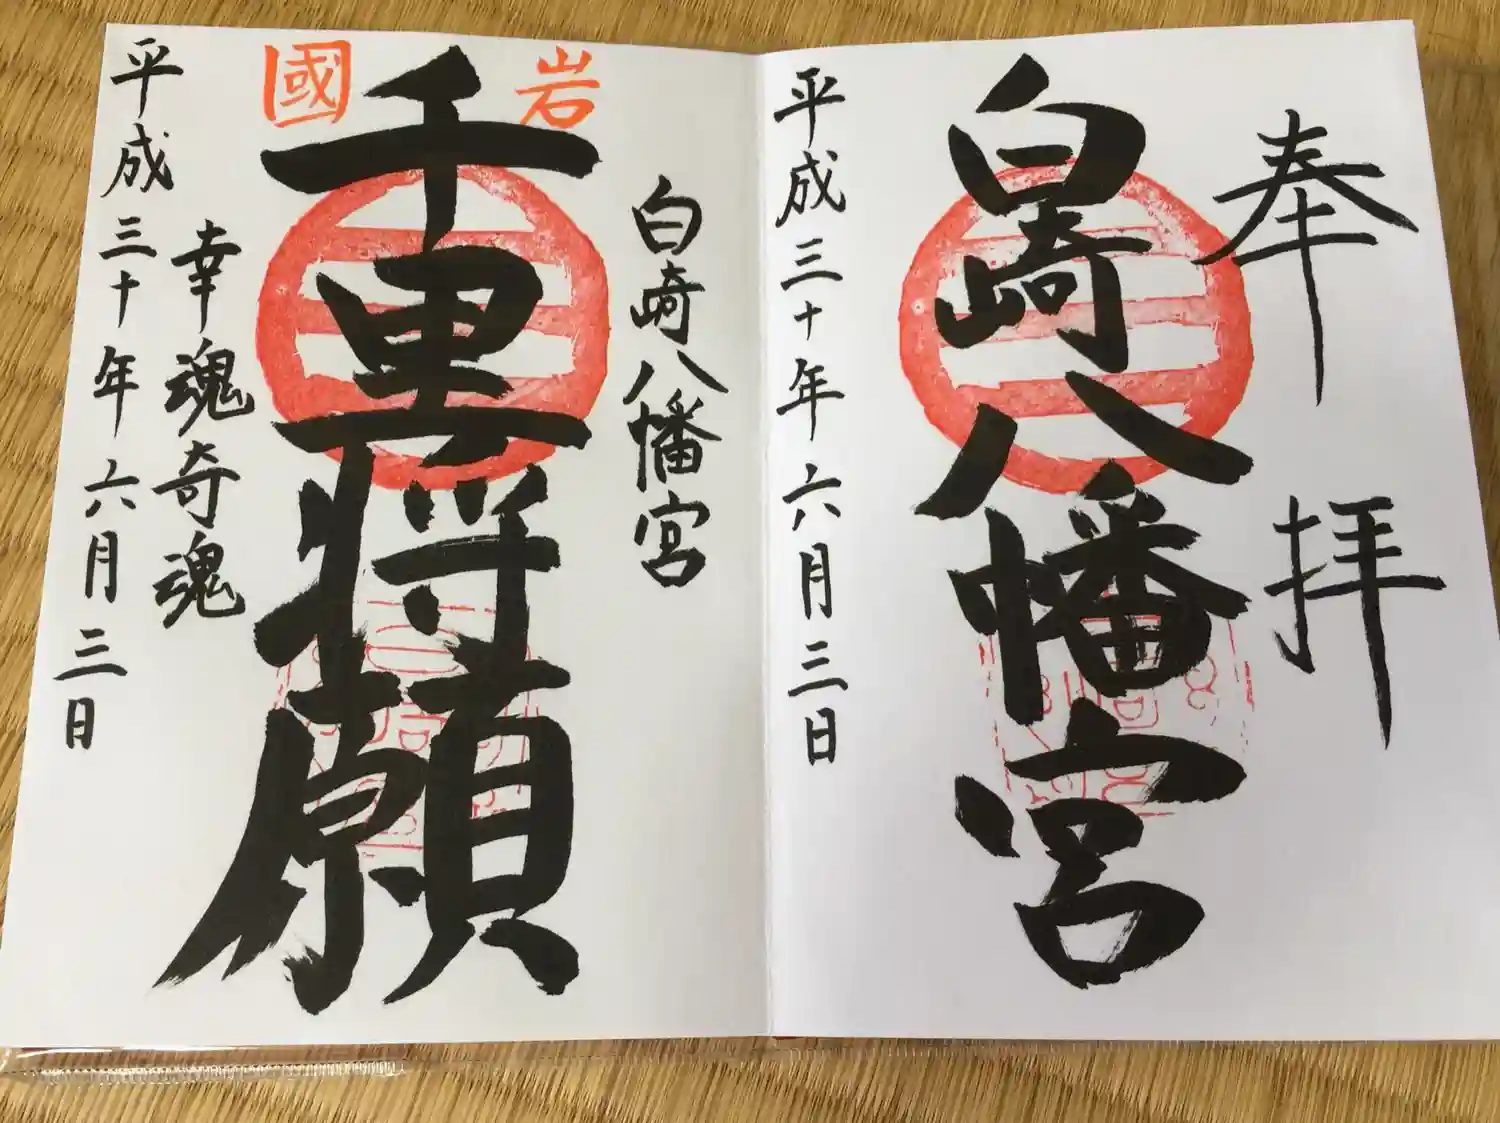 奉拝
白崎八幡宮
平成三十年六月三日
岩
國
白崎八幡宮
千里将願
幸魂奇魂
平成三十年六月三日